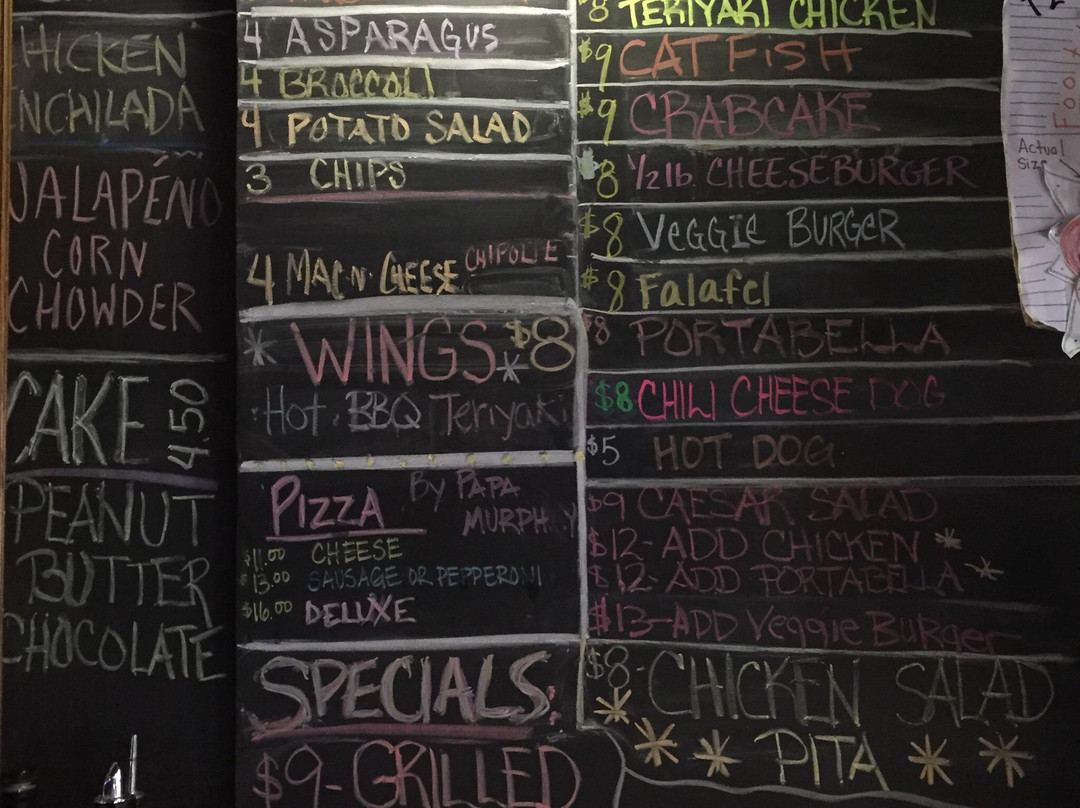 HICKEN
NCHILADA
JALAPÉÑO
CORN
CHOWDER
CAKE 4.50
PEANUT
BUTTER
CHOCOLATE
4 ASPARAGUS
4 BROCCOLI
4 POTATO SALAD
3 CHIPS
4 MAC-N-CHEESE CHIPOLTE
* WINGS * $8
Hot BBQ Teriyaki
Pizza By PAPA
MURPH Y
$11.00 CHEESE
$13.00 SAUSAGE OR PEPPERONI
$16.00 DELUXE
SPECIALS:
$9-GRILLED
8 TERIYAKI CHICKEN
$9 CATFISH
$9 CRABCAKE
8 1/2 lb. CHEESEBURGER
$8 VEGGIE BURGER
$8 Falafel
$8 PORTABELLA
$8 CHILI CHEESE DOG
$5 HOT DOG
$9 CAESAR SALAD
$12-ADD CHICKEN *
$12-ADD PORTABELLA *
$13-ADD Veggie BURGER
$8-CHICKEN SALAD
* * * PITA * *
Foot
Actual
Size